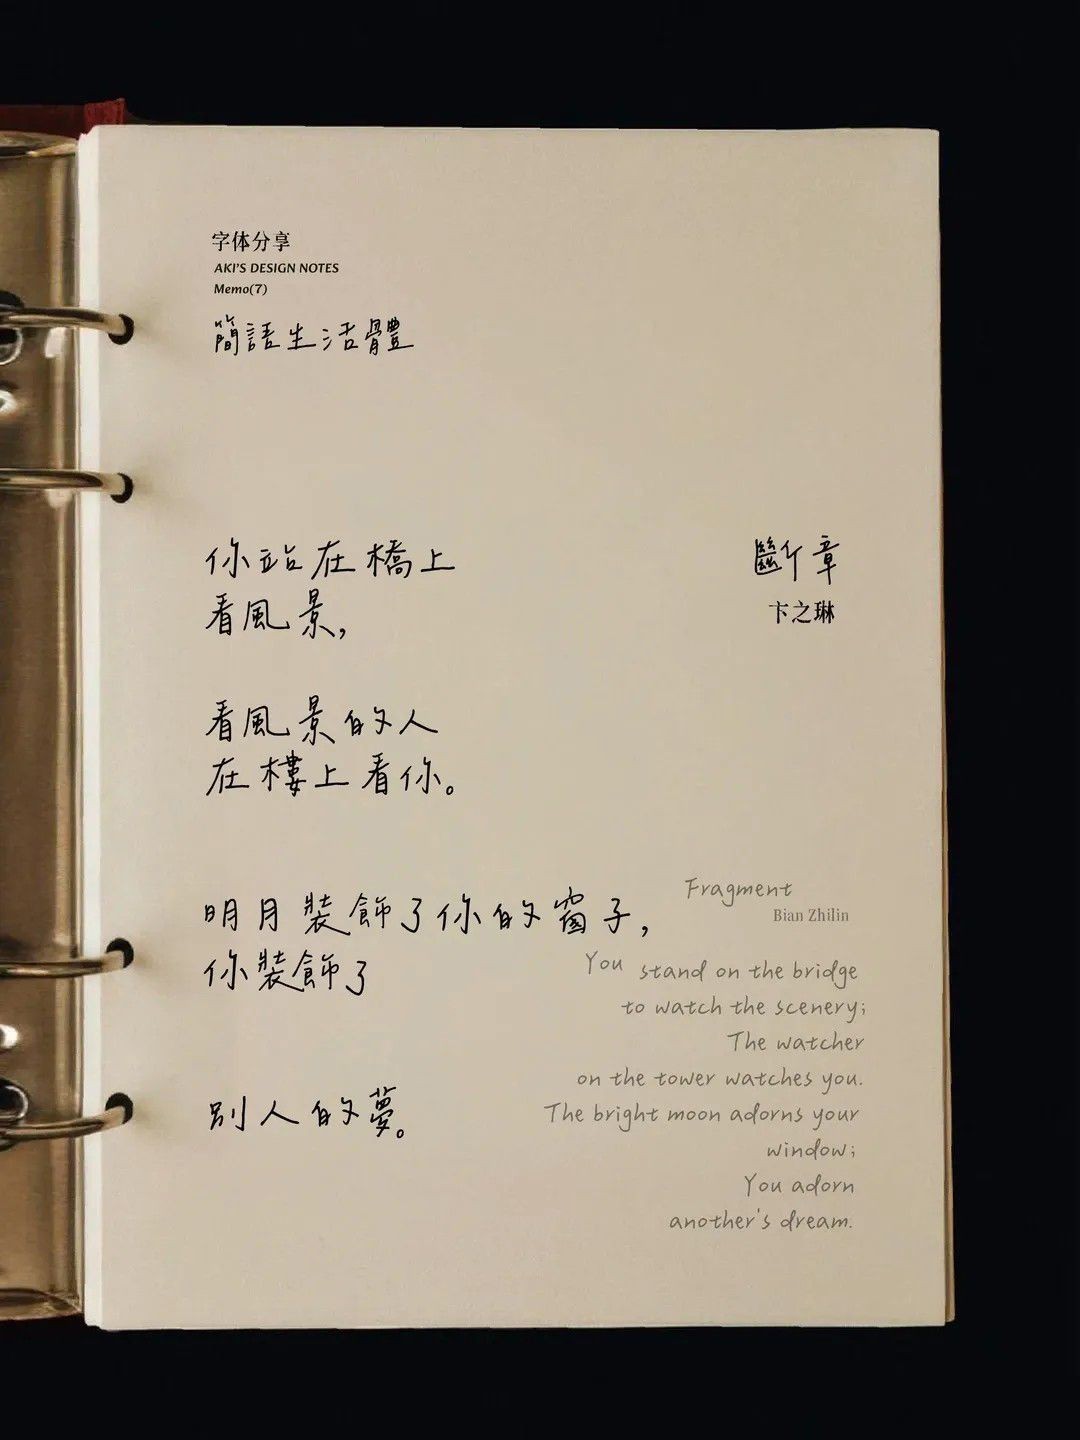 字体分享
AKI'S DESIGN NOTES
Memo(7)
簡語生活體
斷章
卞之琳
你站在橋上
看風景，
看風景的人
在樓上看你。
明月裝飾了你的窗子，
你裝飾了
別人的夢。
Fragment
Bian Zhilin
You stand on the bridge
to watch the scenery;
The watcher
on the tower watches you.
The bright moon adorns your
window;
You adorn
another's dream.